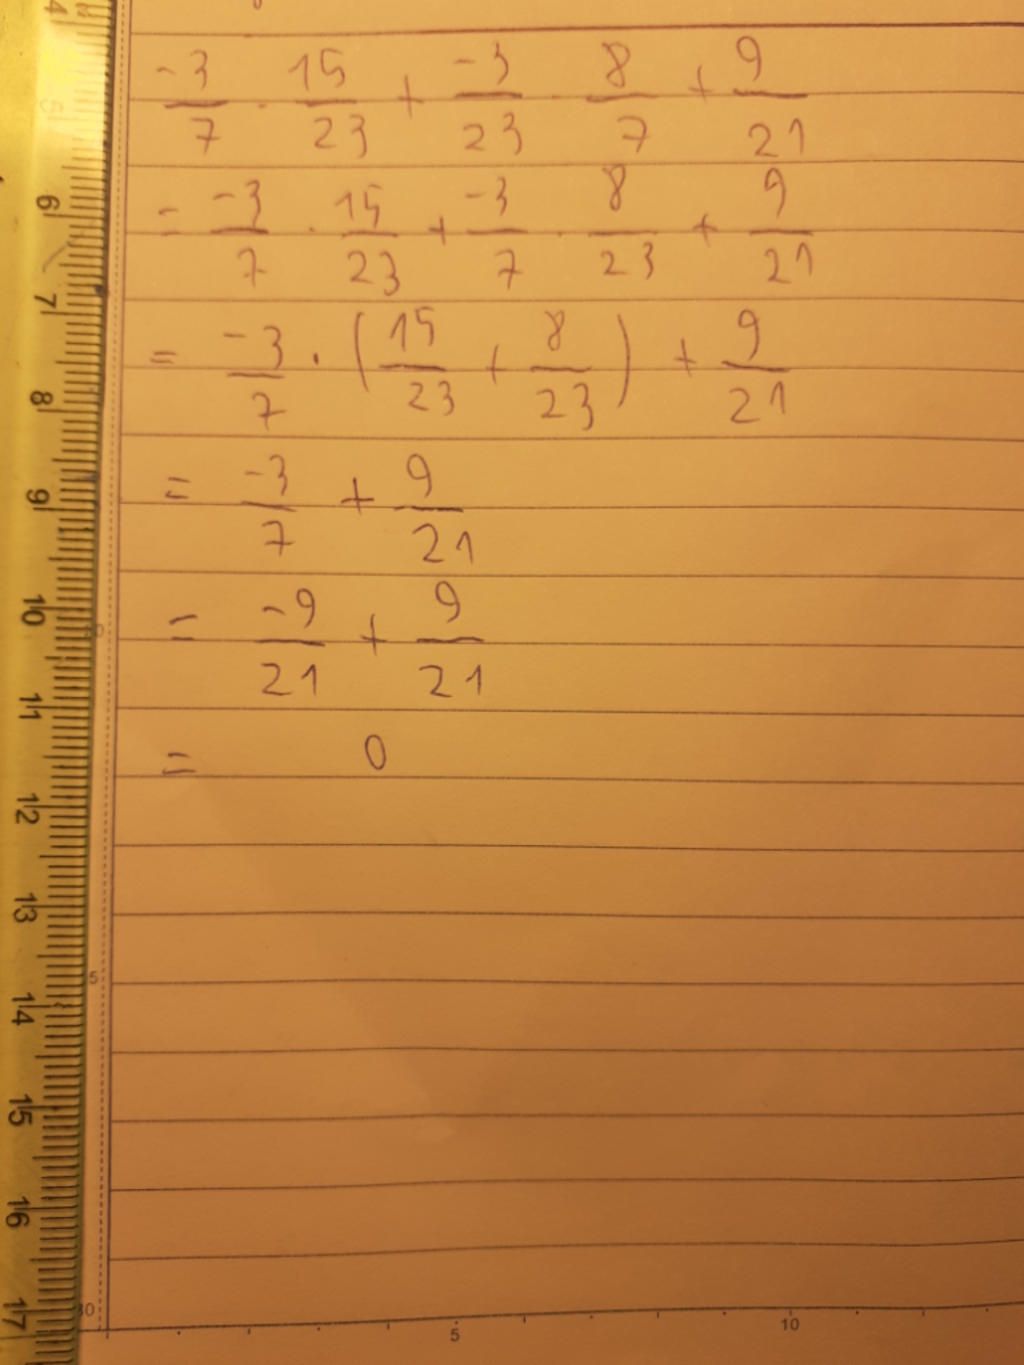 -3/7 · 15/23 + -3/23 · 8/7 + 9/21
= -3/7 · 15/23 + -3/7 · 8/23 + 9/21
= -3/7 · (15/23 + 8/23) + 9/21
= -3/7 + 9/21
= -9/21 + 9/21
= 0
4
5
6
7
8
9
10
11
12
13
14
15
16
17
5
5 10